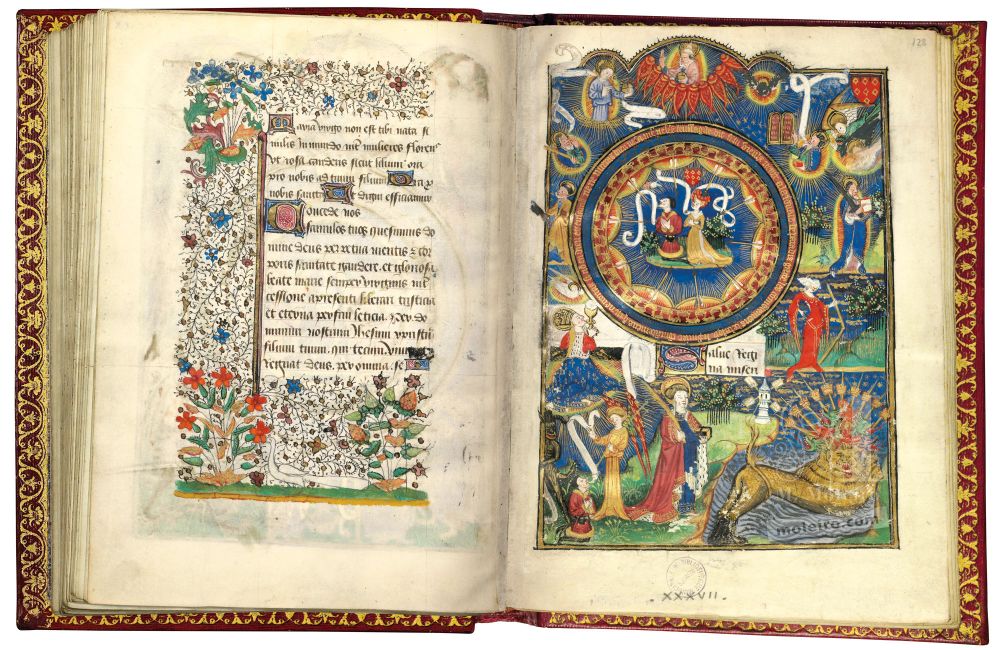 Maria virgo non est tibi nata si
milis in mundo int mulieres floren
vt rosa candens sicut lilium ora
pro nobis ad tuum filium Ora p
nobis sancta Et digni efficiamur
Concede nos
famulos tuos quesumus do
mine deus perpetua mentis & cor
poris sanitate gaudere. et gloriosa
beate marie semper virginis int
cessione a presenti liberari tristicia
et eterna perfrui leticia. Per do
minum nostrum Ihesum xpristum
filium tuum. qui tecum
Regnat deus. per omnia. se
128
Salue Regi
na miseri
moleiro.com
XXXVII.